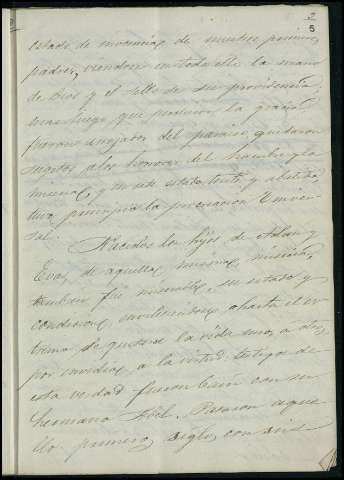 2
5
estado de inocencia de nuestros primeros
padres, viendose en toda ella la mano
de Dios y el sello de su providencia;
mas luego que perdieron la gracia
fueron arrojados del paraiso, quedaron
sugetos a los horrores del hambre y la
miseria, y en este estado triste y abatido,
tuvo principio la procreacion Univer
sal.
Nacidos los hijos de Adan y
Eva, de aquella misma miseria,
tambien fué miserable su estado y
condicion, envileciendose hasta el es
tremo de quitarse la vida unos a otros
por envidia a la virtud: testigo de
esta verdad fueron Cain con su
hermano Abel. Pasaron aque
llos primeros siglos con sus